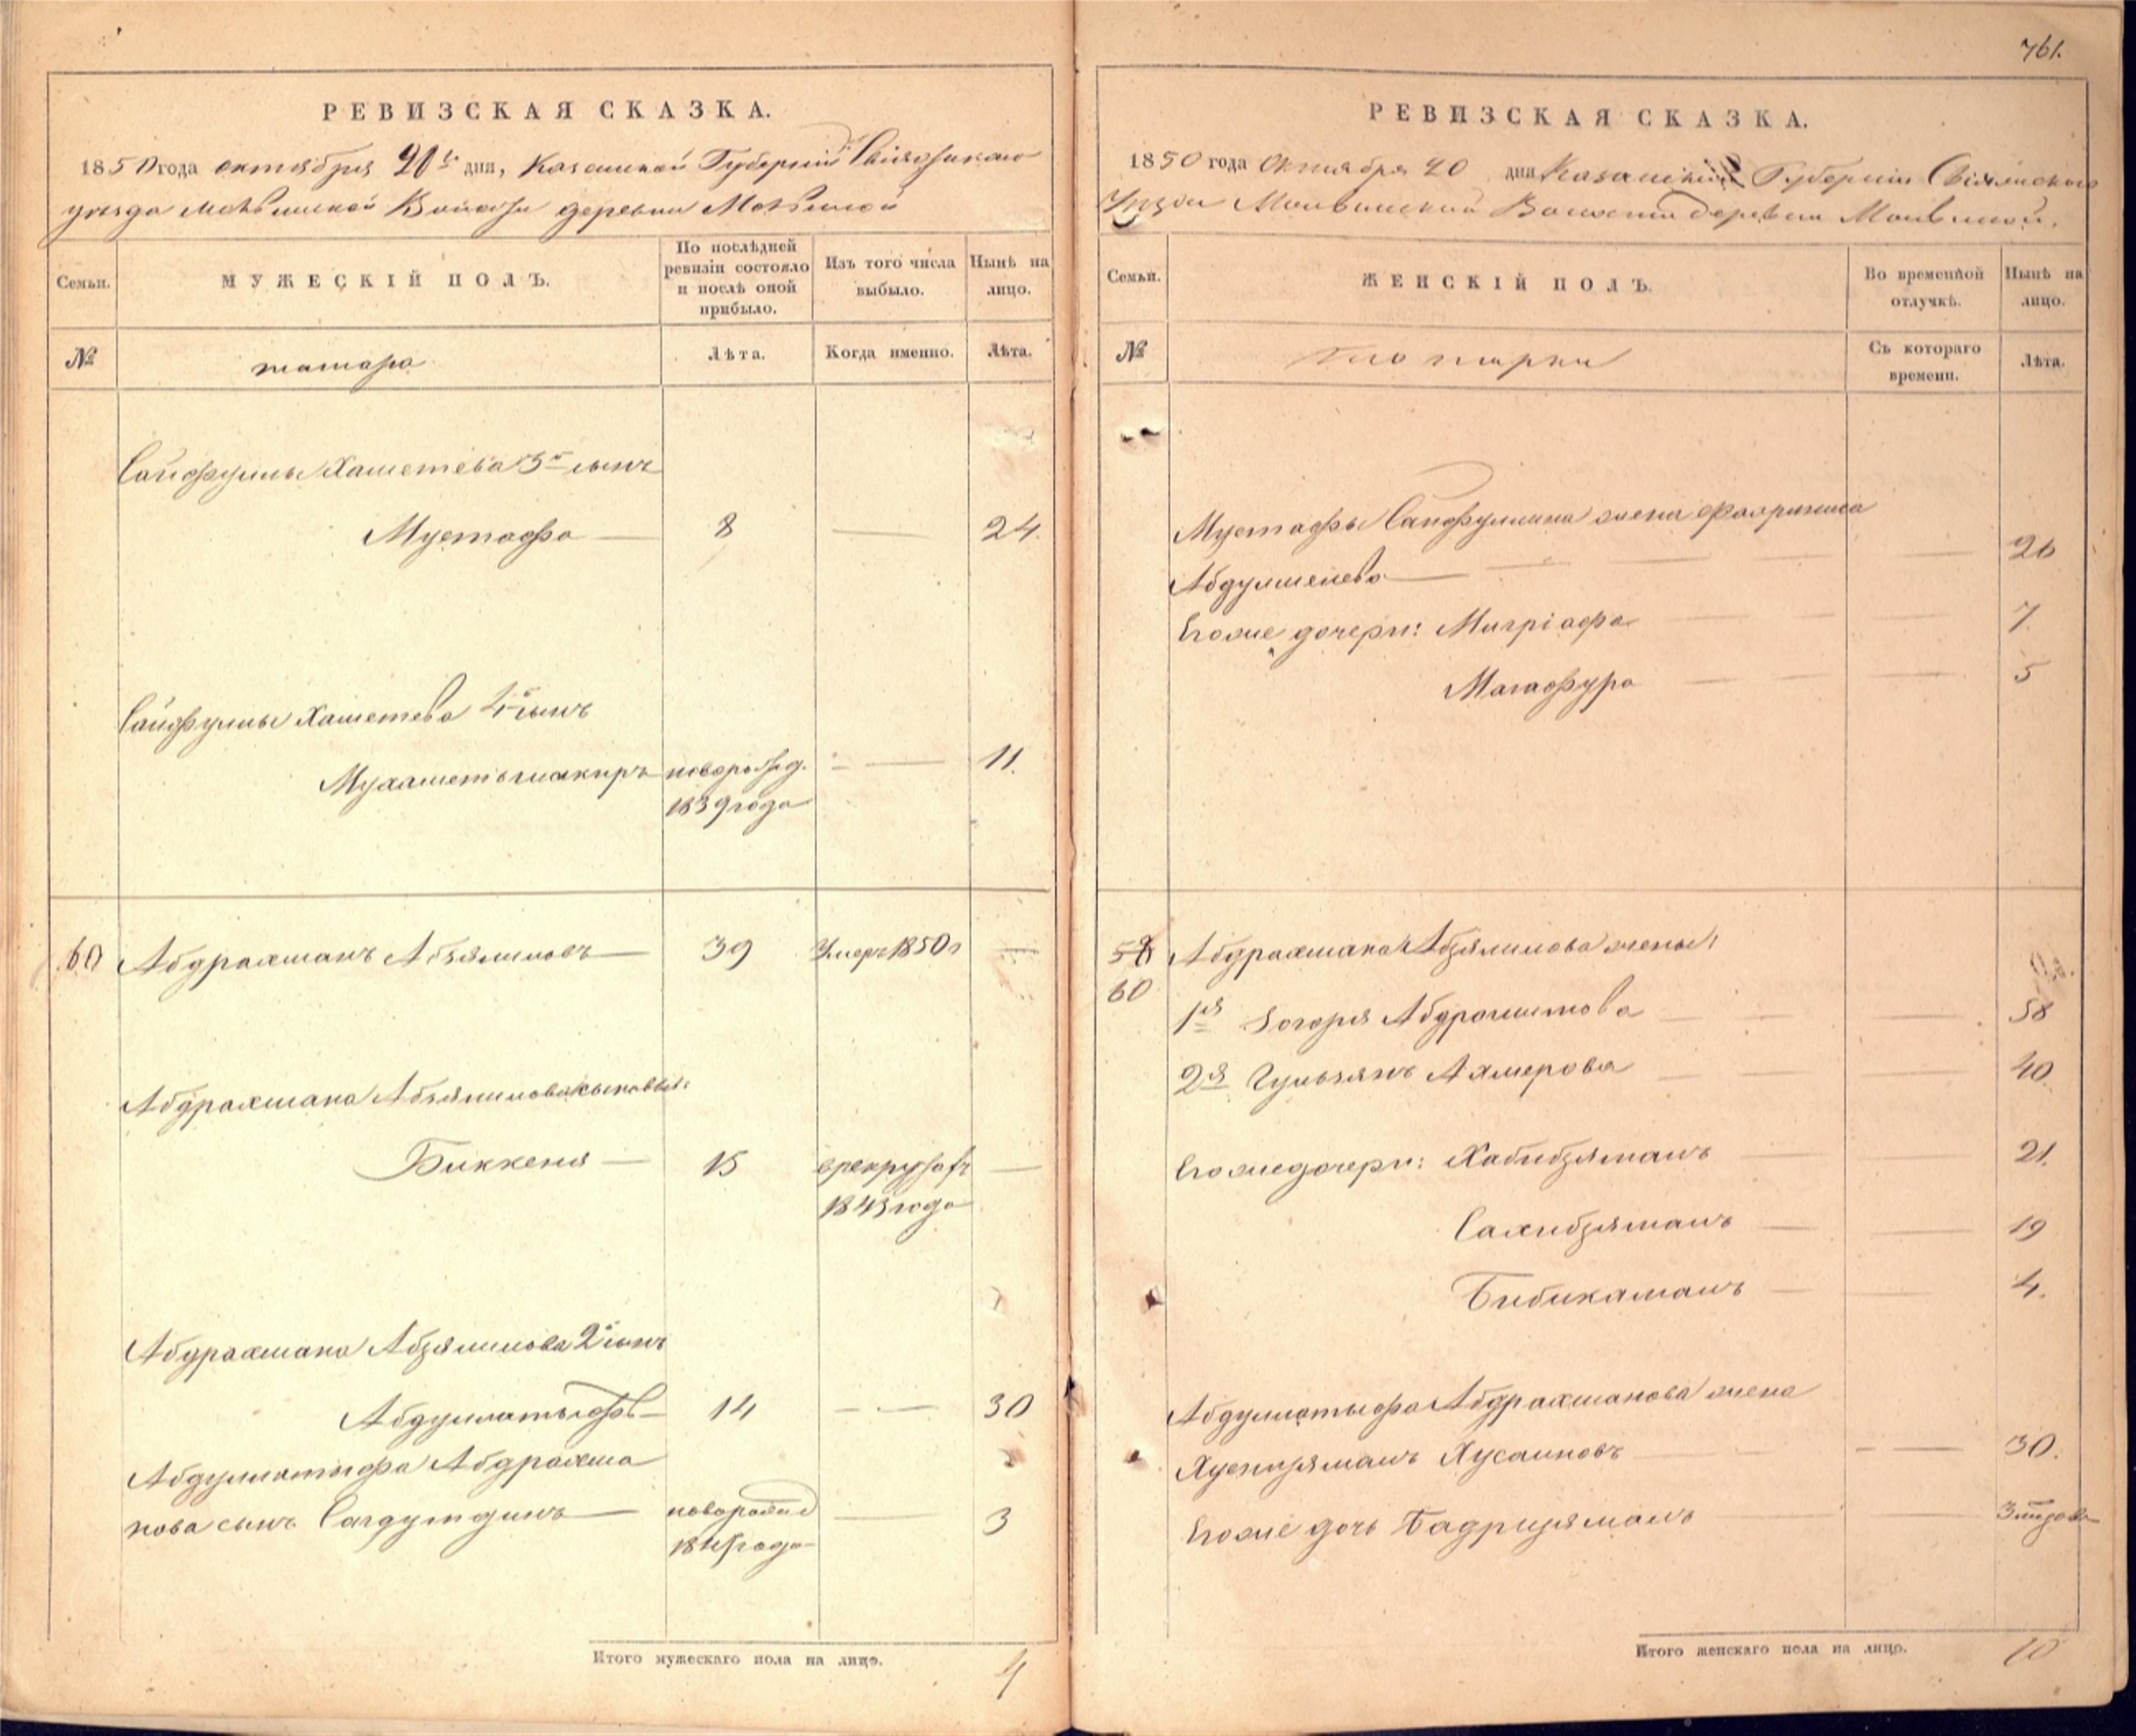 761.
РЕВИЗСКАЯ СКАЗКА.
1850 года октября 20 дня, Казанской Губернии Свіяжскаго
уезда Молвинской Волости деревни Молвиной
Семьи.
МУЖЕСКІЙ ПОЛЪ.
По послѣдней ревизіи состояло и послѣ оной прибыло.
Изъ того числа выбыло.
Нынѣ на лицо.
№
татара
Лѣта.
Когда именно.
Лѣта.
Сайфуллы Хаметева 3й сынъ
Мустафа 8 — 24.
Сайфуллы Хаметева 4й сынъ
Мухаметьшакиръ новорожд. — 11.
1839 года
60 Абдрахманъ Абзялиловъ 39 Умеръ 1850 г —
Абдрахмана Абзялилова сыновья:
Биккеня — 15 в рекрутах —
1843 года
Абдрахмана Абзялилова 2й сынъ
Абдуллатыфъ 14 — 30
Абдуллатыфа Абдрахма
нова сынъ Сагдутдинъ новорожд — 3
года
Итого мужескаго пола на лицо. 4
РЕВИЗСКАЯ СКАЗКА.
1850 года Октября 20 дня Казанской Губерніи Свіяжскаго
Уезда Молвинской Волости деревни Молвиной.
Семьи.
ЖЕНСКІЙ ПОЛЪ.
Во временной отлучкѣ.
Нынѣ на лицо.
№
Съ котораго времени.
Лѣта.
Мустафы Сайфуллина жена
26
Его же дочери: 7
Магафура 5
58 Абдрахмана Абзялилова жены:
60
1я Абдрашитова 58
2я Гульзянъ Ахмерова 40
Его же дочери: Хабибзяманъ 21.
Сахибзяманъ 19
Бибикаманъ 4.
Абдуллатыфа Абдрахманова жена
Хуснизяманъ Хусаинова 30.
Его же дочь Бадризяманъ
Итого женскаго пола на лицо. 10